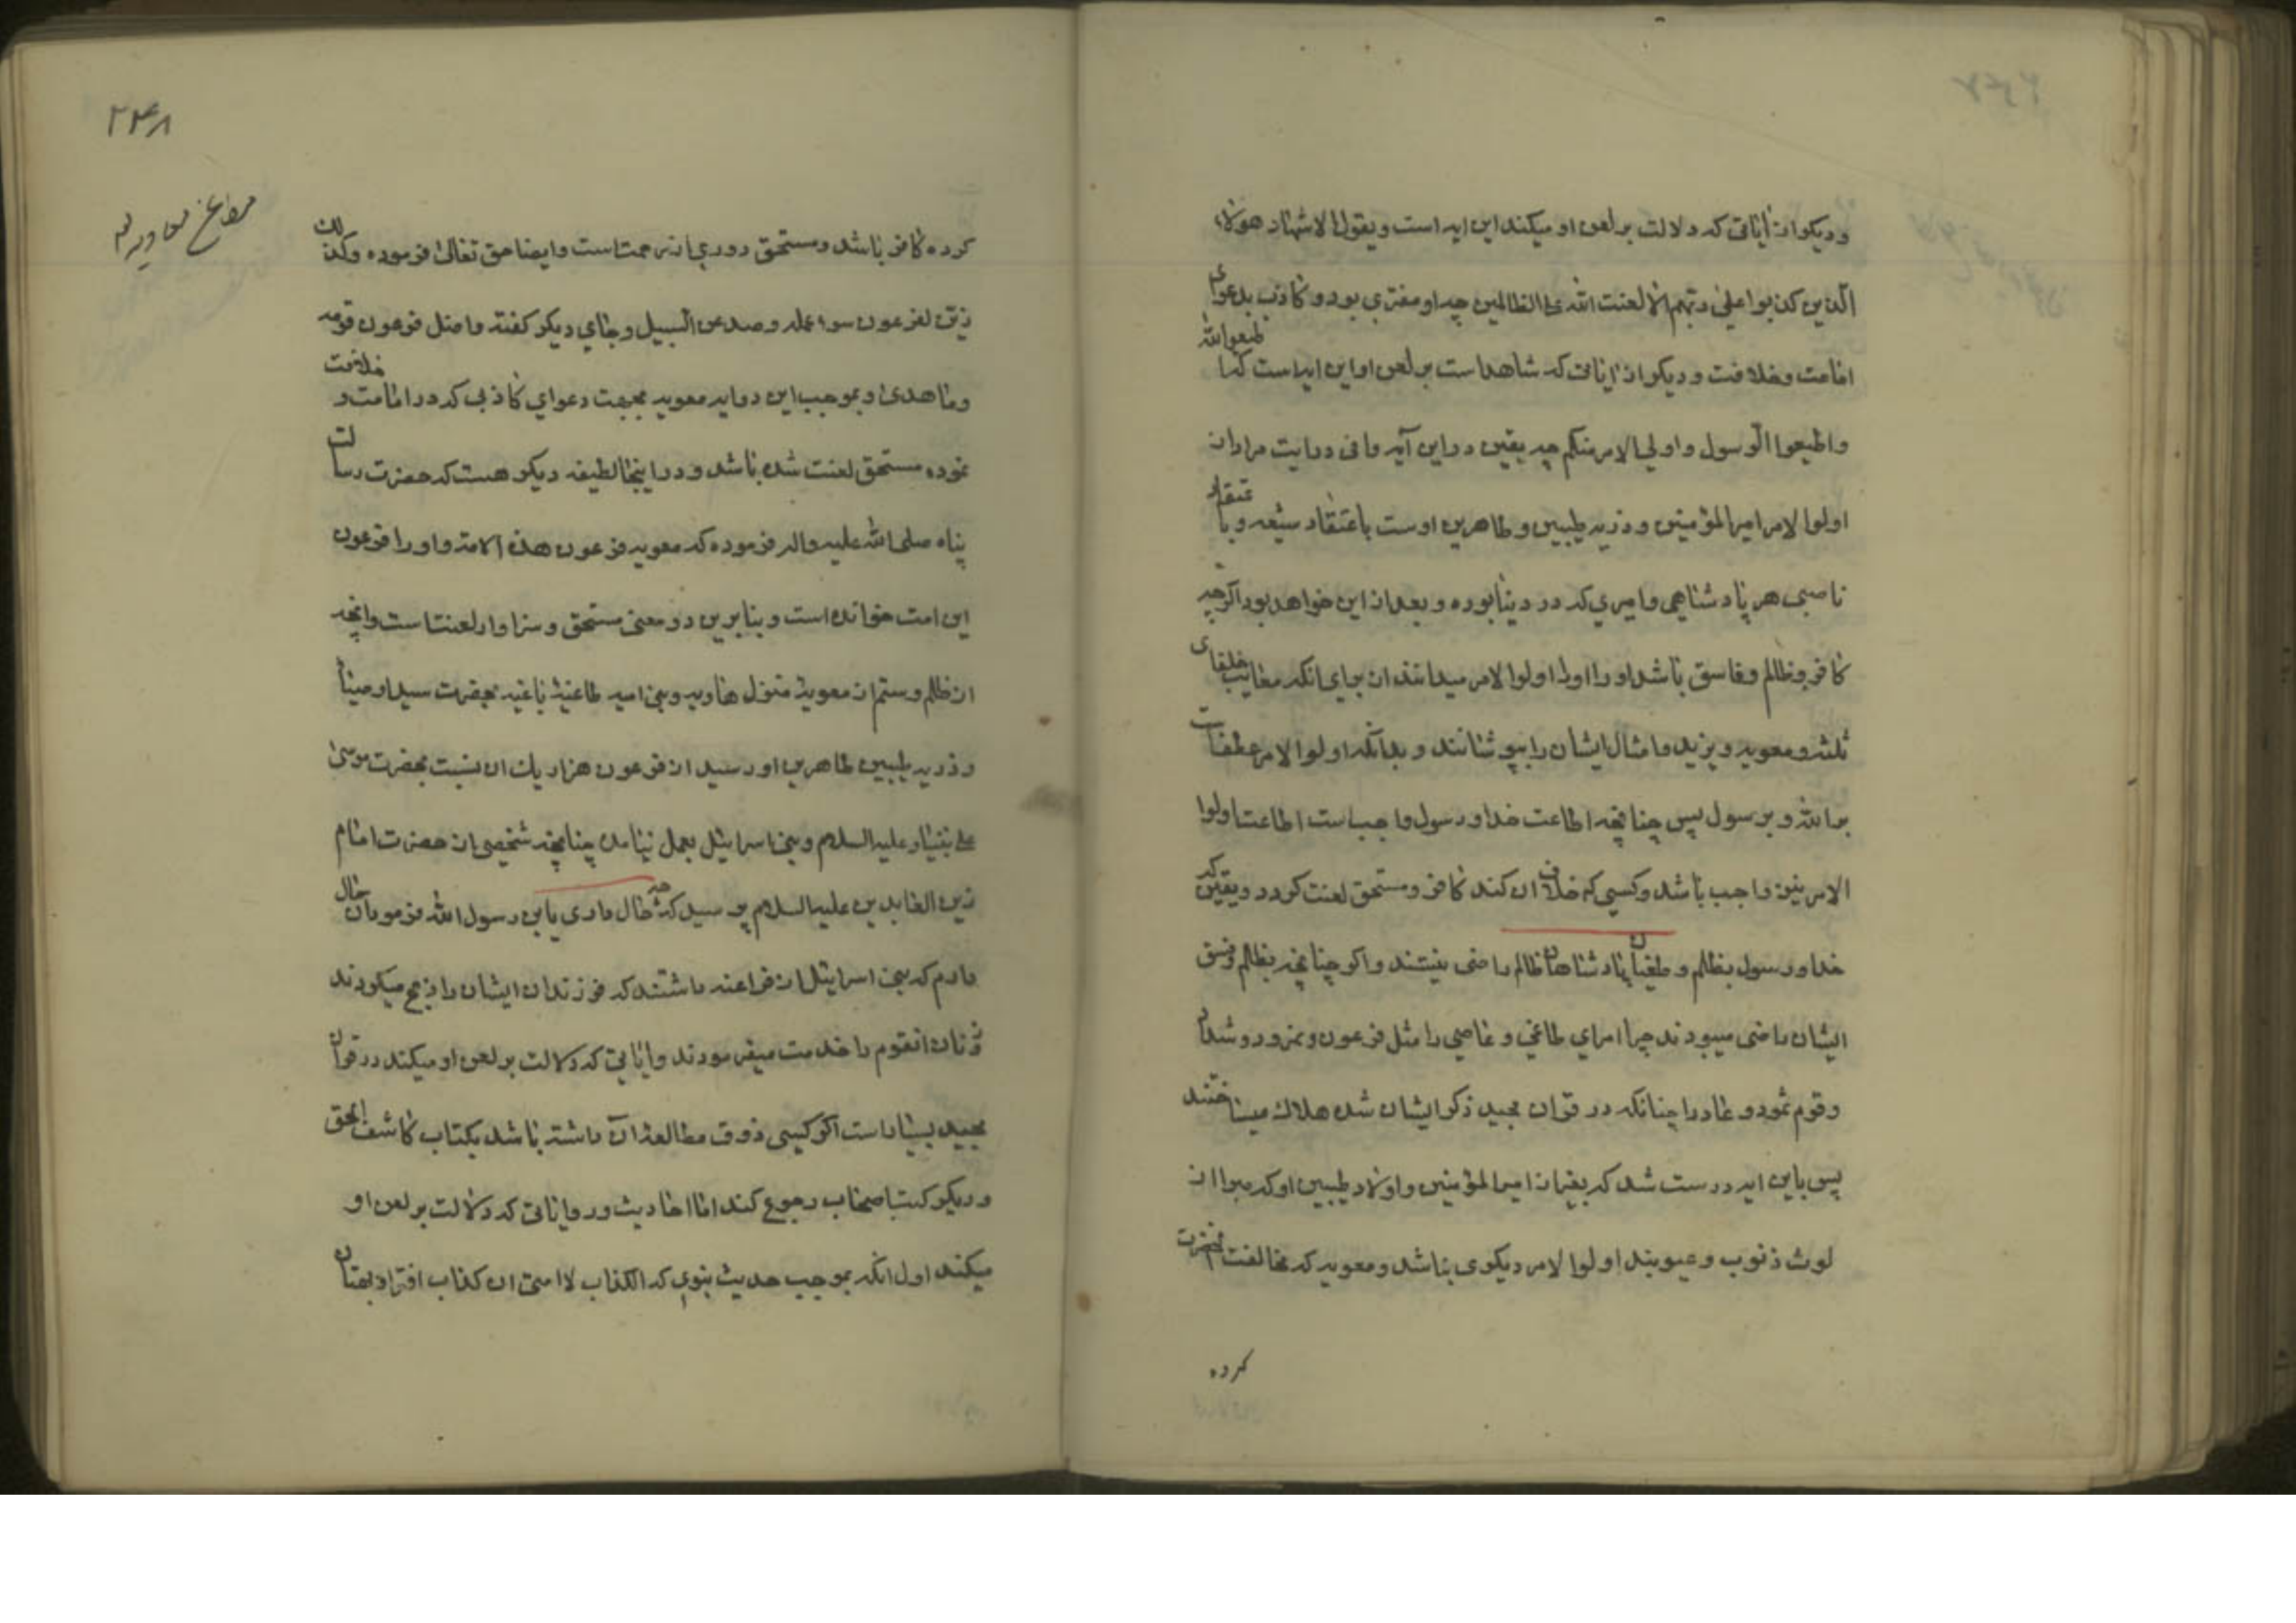 و دیکر از ایاتی که دلالت بر لعن او میکند این ایه است و یقول الاشهاد هولاء
الذین کذبوا علی ربهم الا لعنت الله علی الظالمین چه او مفتری بود و کاذب بدعوای
امامت و خلافت و دیکر از ایاتی که شاهد است بر لعن او این ایه است که اطیعوا الله
واطیعوا الرسول و اولی الامر منکم چه یقین در این آیه وافی درایت مراد از
اولوا الامر امیر المؤمنین و ذریه طیبین و طاهرین اوست باعتقاد شیعه و با عتقاد
ناصبی هر پادشاهی و امیری که در دنیا بوده و بعد از این خواهد بود اکر چه
کافر و ظالم و فاسق باشد او را اولوا الامر میدانند از برای انکه معایب خلفای
ثلثه و معویه و یزید و امثال ایشان را بپوشانند و بدانکه اولوا الامر عطفست
بر الله و بر رسول پس چنانچه اطاعت خدا و رسول واجب است اطاعت اولوا
الامر نیز واجب باشد و کسی که خلاف ان کند کافر و مستحق لعنت کردد و یقین که
خدا و رسول بظلم و طغیان پادشاهان ظالم راضی نیستند و اکر چنانچه بظلم و فسق
ایشان راضی میبودند چرا امرای طاغی و عاصی را مثل فرعون و نمرود و شداد
و قوم ثمود و عاد را چنانکه در قران مجید ذکر ایشان شده هلاک میساختند
پس باین ایه درست شد که بغیر از امیر المؤمنین و اولاد طیبین او که مبرا از
لوث ذنوب و عیوبند اولوا الامر دیکری نباشد و معویه که مخالفت انحضرت
کرده
۲۴۸
کرده کافر باشد و مستحق دوری از رحمت است و ایضا حق تعالی فرموده وکذلک
زین لفرعون سوء عمله وصد عن السبیل و جای دیکر کفته واضل فرعون قومه
وما هدی و بموجب این دو ایه معویه بجهت دعوای کاذبی که در امامت و خلافت
نموده مستحق لعنت شده باشد و در اینجا لطیفه دیکر هست که حضرت رسالت
پناه صلی الله علیه واله فرموده که معویه فرعون هذه الامة و او را فرعون
این امت خوانده است و بنابرین دو معنی مستحق و سزاوار لعنت است و انچه
از ظلم و ستم از معویهٔ هاویه و بنی امیه طاغیهٔ باغیه بحضرت سید اوصیا
و ذریه طیبین طاهرین او رسید از فرعون هزار یک ان نسبت بحضرت موسی
علی نبینا و علیه السلام و بنی اسرائیل بعمل نیامد چنانچه شخصی از حضرت امام
زین العابدین علیه السلام پرسید که چه حال داری یا بن رسول الله فرمود ان حال
دارم که بنی اسرائیل از فراعنه داشتند که فرزندان ایشان را ذبح میکردند
و زنان انقوم را خدمت میفرمودند و ایاتی که دلالت بر لعن او میکند در قران
مجید بسیار است اکر کسی ذوق مطالعهٔ ان داشته باشد بکتاب کاشف الحق
و دیکر کتب اصحاب رجوع کند اما احادیث و روایاتی که دلالت بر لعن او
میکند اول انکه بموجب حدیث نبوی که الکذاب لا امتی ان کذاب افترا و بهتان